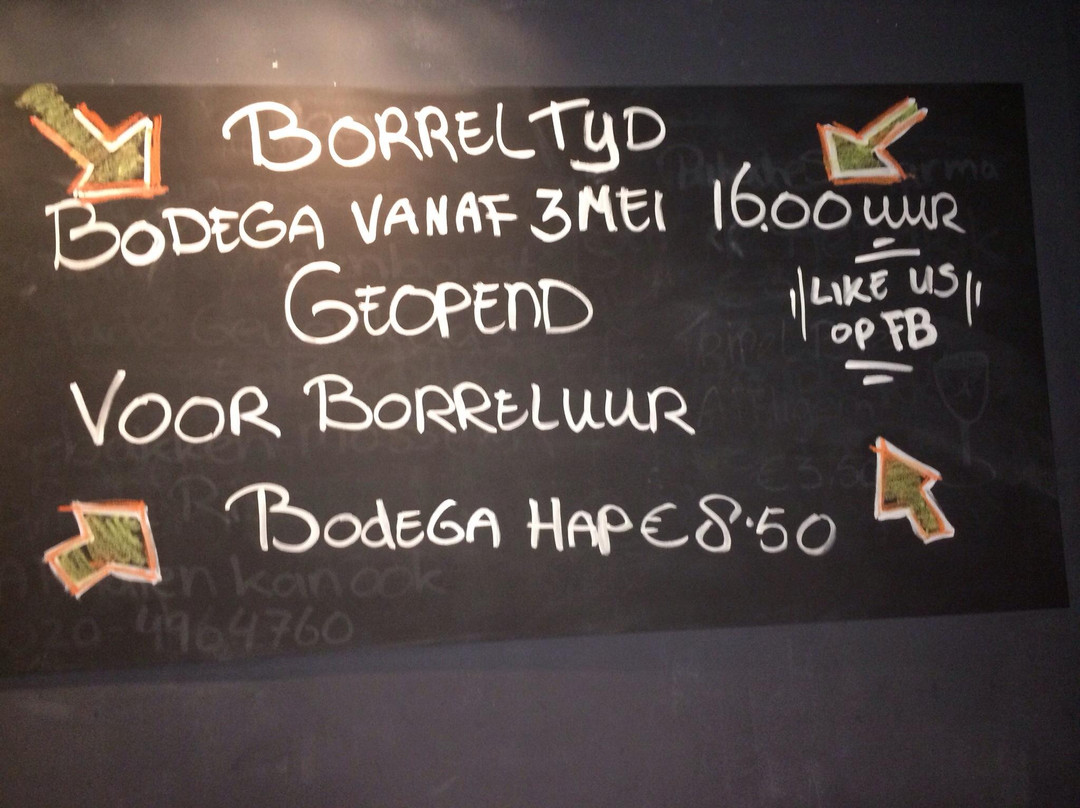 BORRELTyD
BODEGA VANAF 3 MEI 16.00 UUR
GEOPEND
LIKE US
OP FB
VOOR BORRELUUR
BODEGA HAP € 8.50
en kan ook
020-4964760